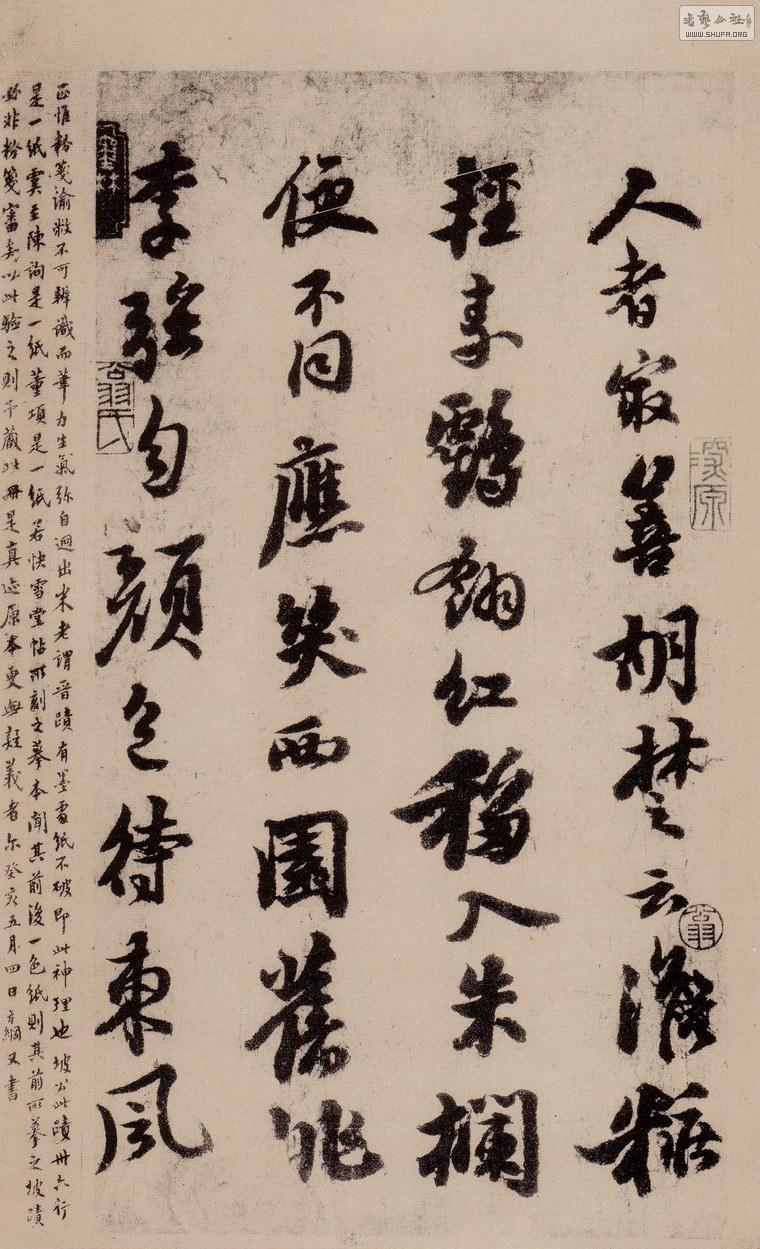 書藝公社
WWW.SHUFA.ORG
人者最善胡楚云澹粧
輕素鶴翎紅移入朱欄
便不同應笑西園舊桃
李強勻顏色待東風
正惟粉箋渝敝不可辨識而筆力生氣弥自迥出米老謂晉蹟有墨處紙不破即此神理也坡公此蹟册六行
是一紙虞至陳詢是一紙董項是一紙若快雪堂帖所刻之摹本聞其前後一色紙則其前所摹之坡蹟
必非粉箋審矣以此驗之則予藏此册是真迹原本更無疑義者尔癸亥五月四日方綱又書
翁
翁氏